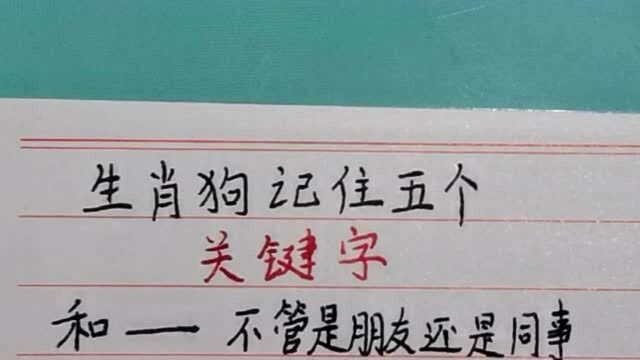 生肖狗记住五个
关键字
和 — 不管是朋友还是同事